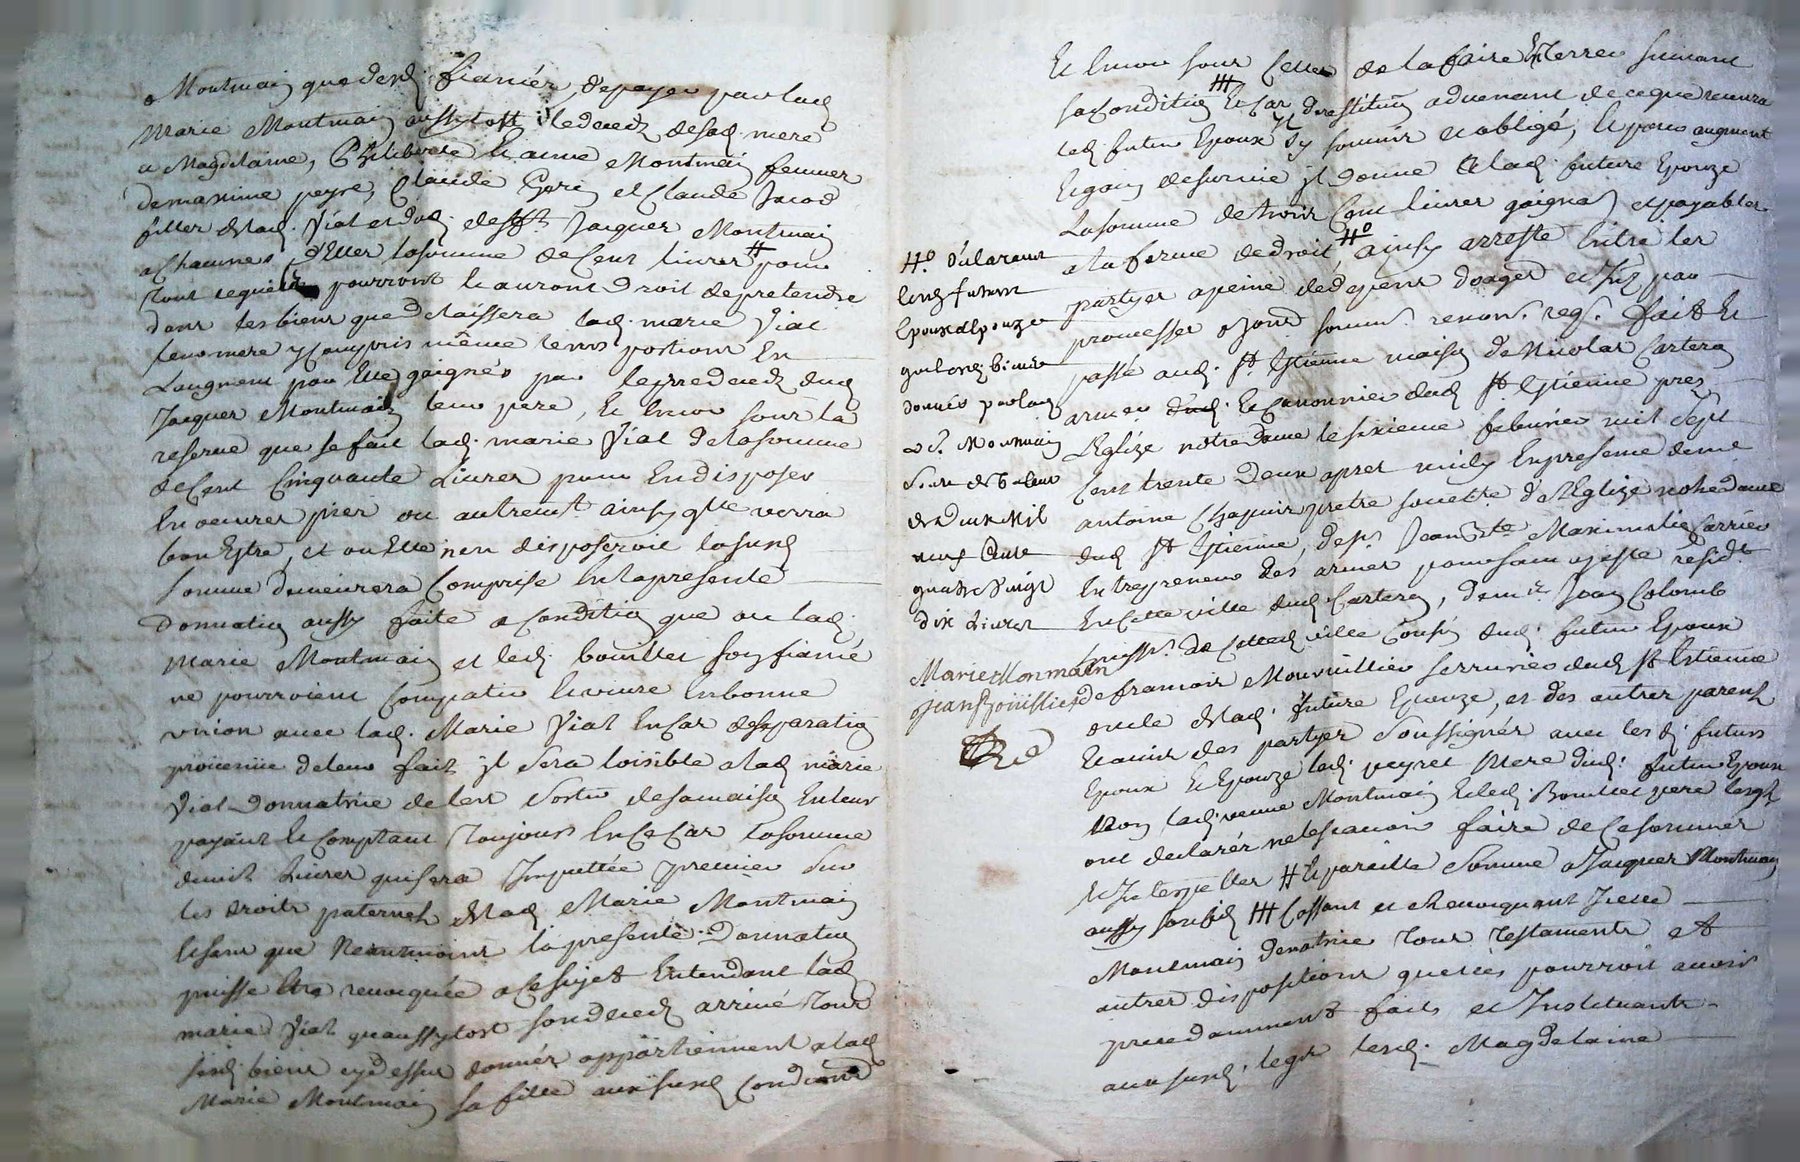 Montmain que dud. fiancés, de payer par lad.
Marie Montmain aussytost le deceds de sad. mere
a Magdelaine, Philiberte et anne Montmain femmes
de maxime peyre, Claude Gori et Claude Jacod
filles de lad. Vial et dud. deff.t Jacques Montmain
a Chacunes d'Elles la somme de Cent livres # pour
tout ce qu'elles pourront et auront droit de pretendre
dans les biens que delaissera lad. marie Vial
leur mere y compris même leurs portions En
Laugment par Elle gaignés par le predeceds dud.
Jacques Montmain leur pere Et Encor sous la
reserve que se fait lad. marie Vial de la somme
de Cent Cinquante Livres pour En disposer
En oeuvres pies ou autrem.t ainsy qu'elle verra
bon Estre, et ou Elle n'en disposeroit la susd.
somme demeurera Comprise En la presente
Donnation aussy faite a condition que ou lad.
Marie Montmain et led. bouillet son fiancé
ne pourroient Compatir et vivre En bonne
union avec lad. Marie Vial En Cas de separation
provenüe de leur fait il sera loisible a lad. marie
Vial Donnatrice de les sortir de sa maison En leur
payant Et Comptant Toujours En ce Cas la somme
de huit Livres qui sera Imputtée premier sur
les droits paternels de lad. Marie Montmain
Et sans que Neantmoins la presente Donnation
puisse Etre revoquée a ce sujet Entendant lad.
marie Vial qu'aussytost son deceds arrivé Tous
sesd. biens cy dessus donnés appartiennent a lad.
Marie Montmain sa fille aux susd. conditions
Et Encor sous Celle de la faire Enterrer suivant
sa condition ### Et Car de restitution advenant de ce que recevra
led. futur Epoux s'y soumis et obligé, Et pour augment
Et gain de survie il donne a lad. future Epouze
La somme de trois Cent livres gaignes et payables
a la forme de droit, #° ainsy arresté Entre les
partyes a peine de depens domges et Int. par
promesses ser. soumis. renon. req. fait Et
passé aud. St. Estienne maison de Nicolas Carteron
armurier Et Canonnier dud. St. Estienne pres
L'Eglize notre dame le sixieme febvrier mil Sept
Cent trente Deux apres midy En presence de me
antoine Chapuis pretre societre d'Eglize notre dame
dud. St. Estienne, de sr. Jean Bte Maximilie Carrier
Entrepreneur Des armes pour sa majeste resid.t
En cette ville dud. Carteron, de me Jean Colomb
de Cetted. ville Cousin dud. futur Epoux
de francois Mouvillier serrurier dud. St. Estienne
oncle de lad. future Epouze, et des autres parens
Et amis des partyes soussignés avec lesd. futurs
Epoux Et Epouze lad. peyret Mere dud. futur Epoux
Non lad. veuve Montmain Et led. Bouillet pere lesqls
ont declarés ne le scavoir faire de Ce sommés
Et Interpelles # Et pareille Somme a Jacques Montmain
aussy son fils ### Cassant et revoquant Icelle
Montmain Donatrice Tous Testaments et
autres dispositions qu'elle pourroit avoir
precedamment faits et Instituant
aux susd. legs lesd. Magdelaine
#° declarant
lesd. futurs
Epoux et Epouze
que les biens
donnés par lad.
Ve. Montmain
sont de Valeur
de deux Mil
neuf Cent
quatre Vingt
dix Livres
Marie Monmain
jean Bouillet